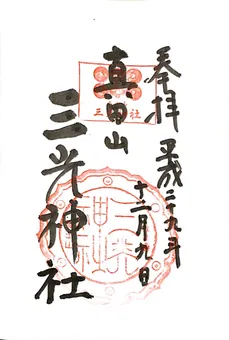 奉拝 平成二十九年
十二月九日
真田山
三光神社
三 社